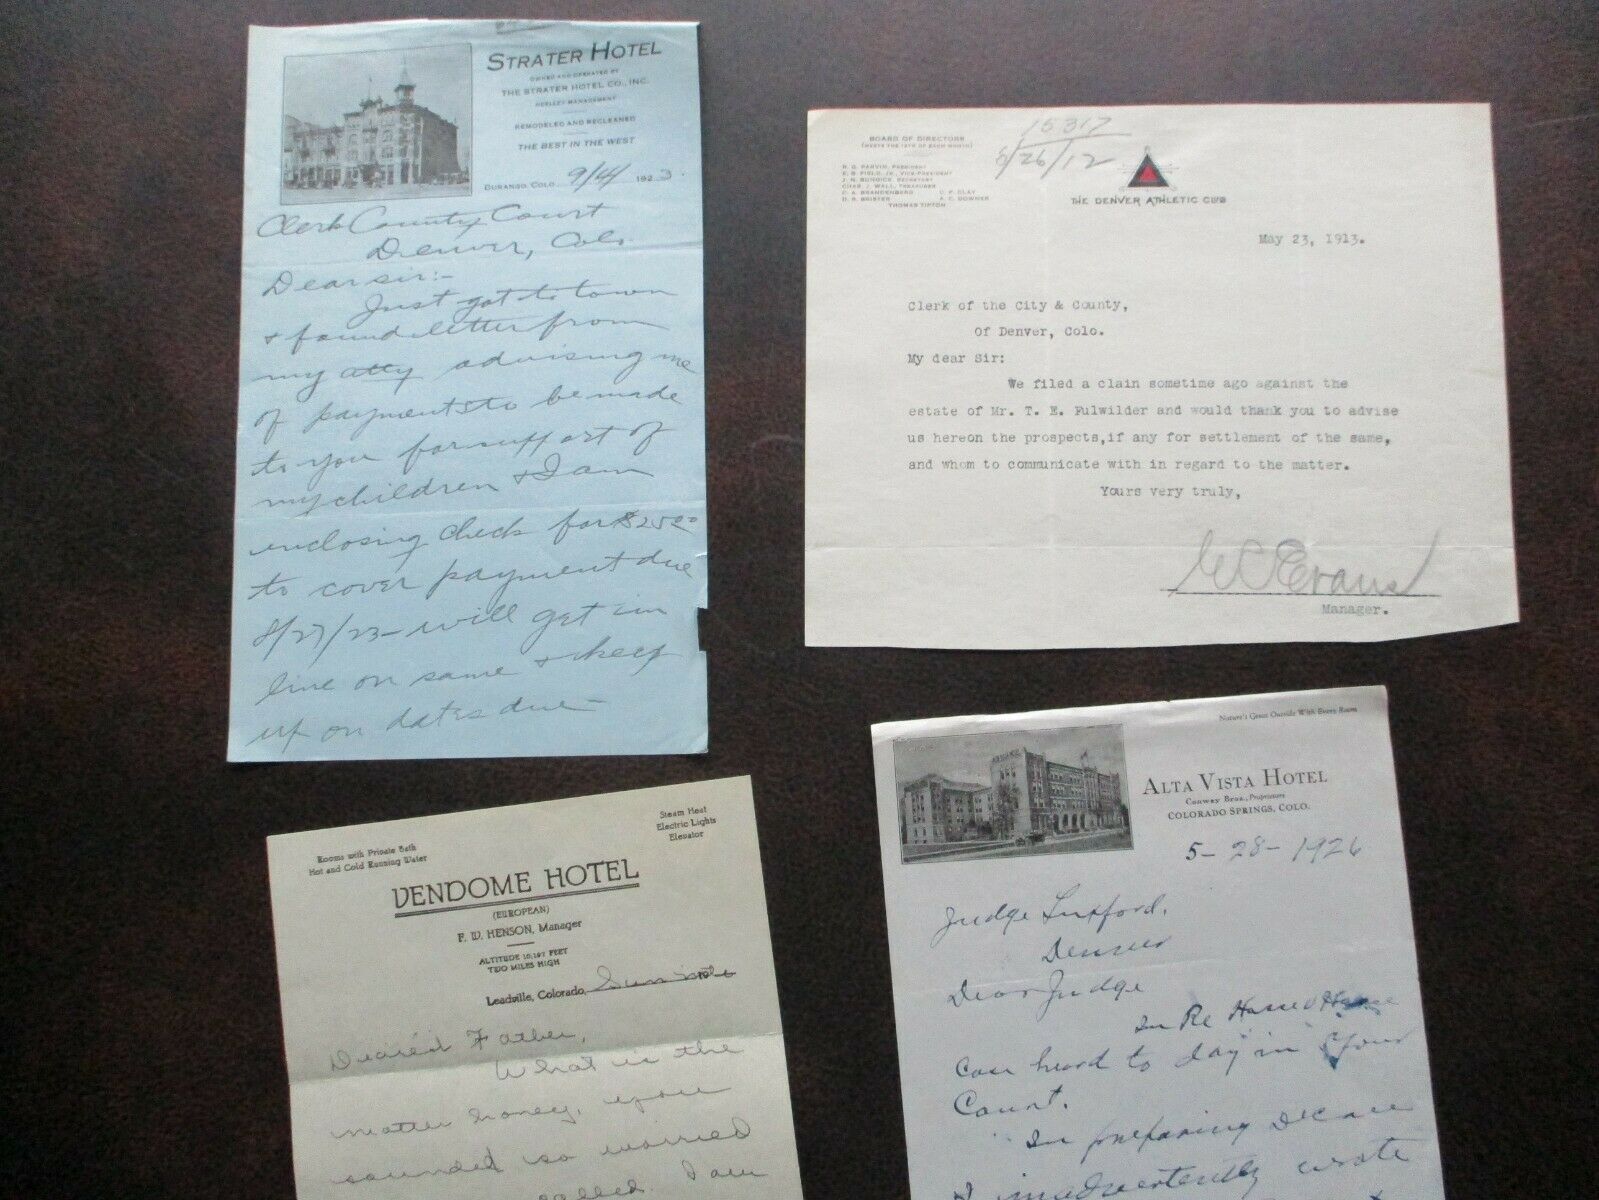 STRATER HOTEL
OWNED AND OPERATED BY
THE STRATER HOTEL CO., INC.
MANAGEMENT
REMODELED AND RECLEANED
THE BEST IN THE WEST
DURANGO, COLO., 9/4/ 1923.
Clerk County Court
Denver, Colo.
Dear sir:-
Just got to town
& found letter from
my atty advising me
of payments to be made
to you for support of
my children & I am
enclosing check for $25.00
to cover payment due
8/27/23 - will get in
line on same & keep
up on dates due -
BOARD OF DIRECTORS
(MEETS THE 15TH OF EACH MONTH)
R. G. PARVIN, PRESIDENT
E. B. FIELD, JR., VICE-PRESIDENT
J. N. BURDICK, SECRETARY
CHAS. J. WALL, TREASURER
C. A. BRANDENBERG C. P. CLAY
D. S. BRISTER A. E. BOWNER
THOMAS TIPTON
15317
5/26/12
THE DENVER ATHLETIC CLUB
May 23, 1913.
Clerk of the City & County,
Of Denver, Colo.
My dear Sir:
We filed a clain sometime ago against the
estate of Mr. T. E. Fulwilder and would thank you to advise
us hereon the prospects,if any for settlement of the same,
and whom to communicate with in regard to the matter.
Yours very truly,
C Evans
Manager.
Rooms with Private Bath
Hot and Cold Running Water
Steam Heat
Electric Lights
Elevator
VENDOME HOTEL
(EUROPEAN)
F. W. HENSON, Manager
ALTITUDE 10,187 FEET
TWO MILES HIGH
Leadville, Colorado,
Dearest Father,
What is the
matter honey, you
sounded so worried
called. I am
Nature's Great Outside With Every Room
ALTA VISTA HOTEL
Conway Bros., Proprietors
COLORADO SPRINGS, COLO.
5-28-1926
Judge Luxford,
Denver
Dear Judge
In Re
Case heard to day in your
Court.
In preparing
I inadvertently wrote